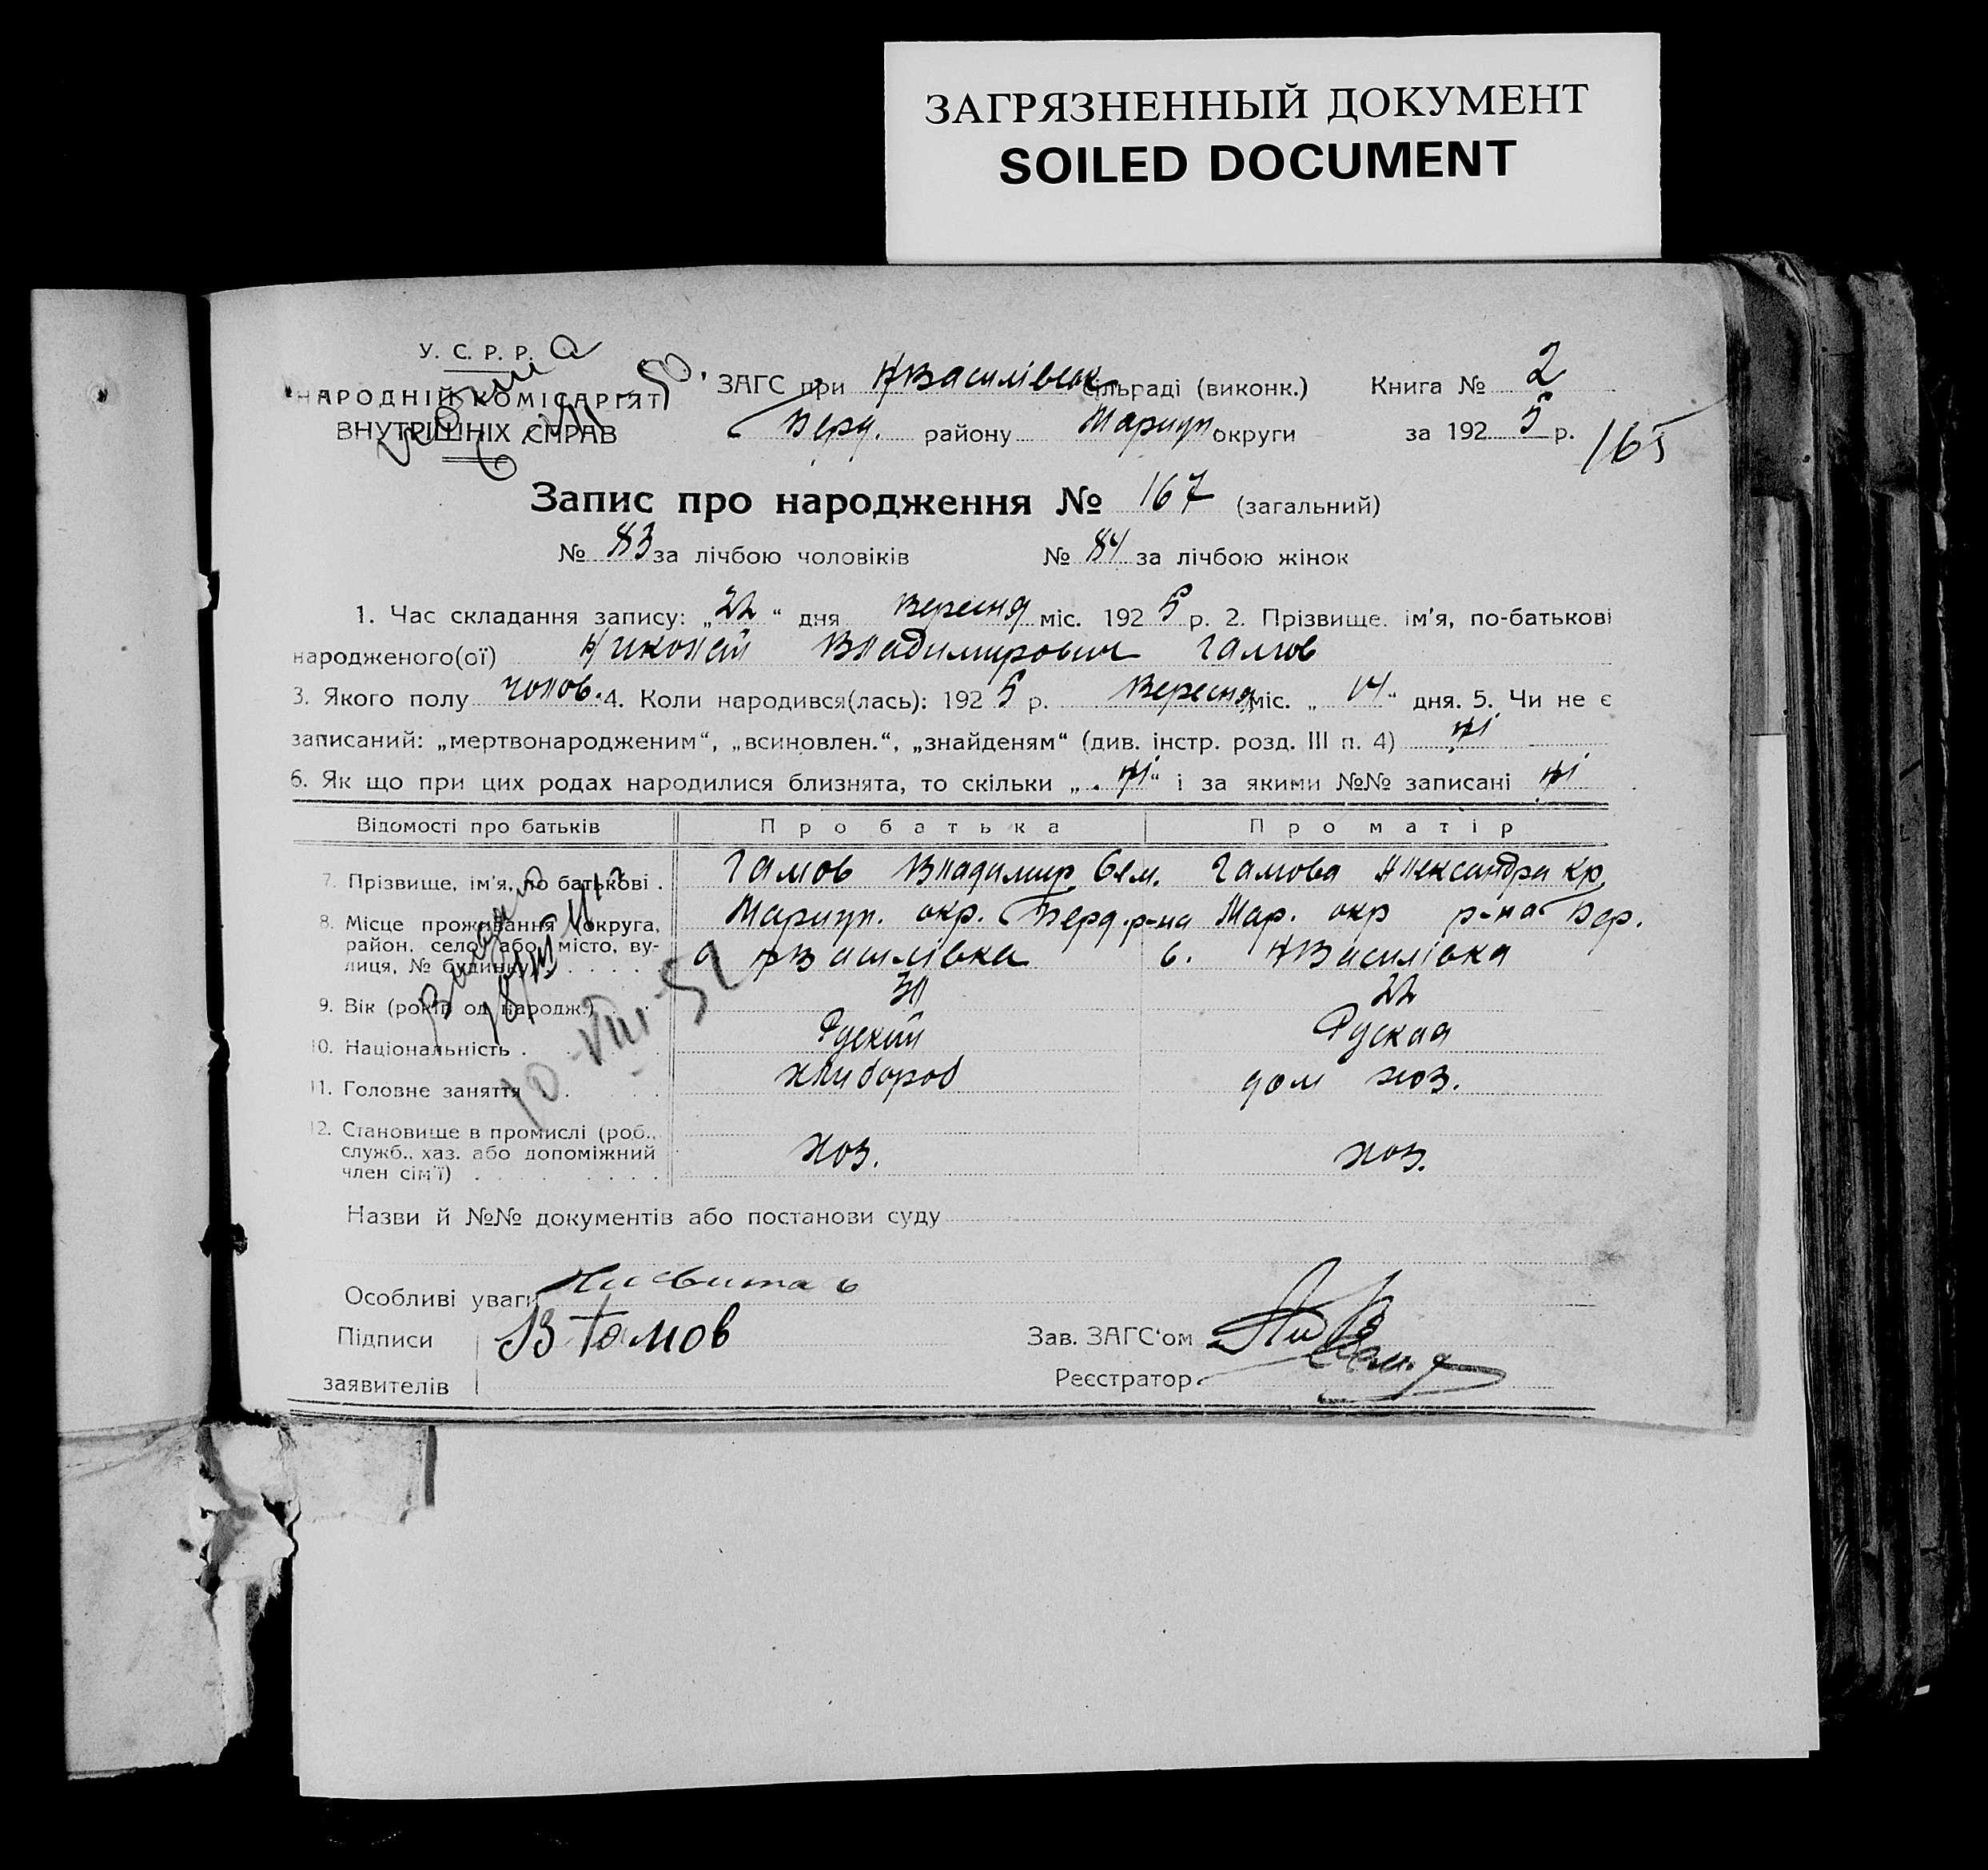 ЗАГРЯЗНЕННЫЙ ДОКУМЕНТ
SOILED DOCUMENT
У. С. Р. Р.
НАРОДНІЙ КОМІСАРІЯТ
ВНУТРІШНІХ СПРАВ
ЗАГС при НВасилівськ сільраді (виконк.) Книга № 2
Берд. району Мариуп. округи за 1925 р.
165
Запис про народження № 167 (загальний)
№ 83 за лічбою чоловіків № 84 за лічбою жінок
1. Час складання запису: „22“ дня Вересня міс. 1925 р. 2. Прізвище, ім'я, по-батькові
народженого(ої) Николай Владимирович Гамов
3. Якого полу чолов. 4. Коли народився(лась): 1925 р. Вересня міс. „14“ дня. 5. Чи не є
записаний: „мертвонародженим“, „всиновлен.“, „знайденям“ (див. інстр. розд. III п. 4) ні
6. Як що при цих родах народилися близнята, то скільки „ні“ і за якими №№ записані ні
Відомості про батьків Про батька Про матір
7. Прізвище, ім'я, по батькові . Гамов Владимир Сем. Гамова Александра Кр.
8. Місце проживання (округа, Мариуп. окр. Берд. р-на Мар. окр р-на Бер.
район, село або місто, ву- с НВасилівка с. НВасилівка
лиця, № будинку) . . . .
9. Вік (років од народж.) 22
10. Національність . Руский Руская
11. Головне заняття хлибороб дом хоз.
10-VIII-51
12. Становище в промислі (роб.,
служб., хаз. або допоміжний хоз. хоз.
член сім'ї) . . . . . . .
Назви й №№ документів або постанови суду
Особливі уваги
Підписи В Гамов Зав. ЗАГС'ом
заявителів Реєстратор